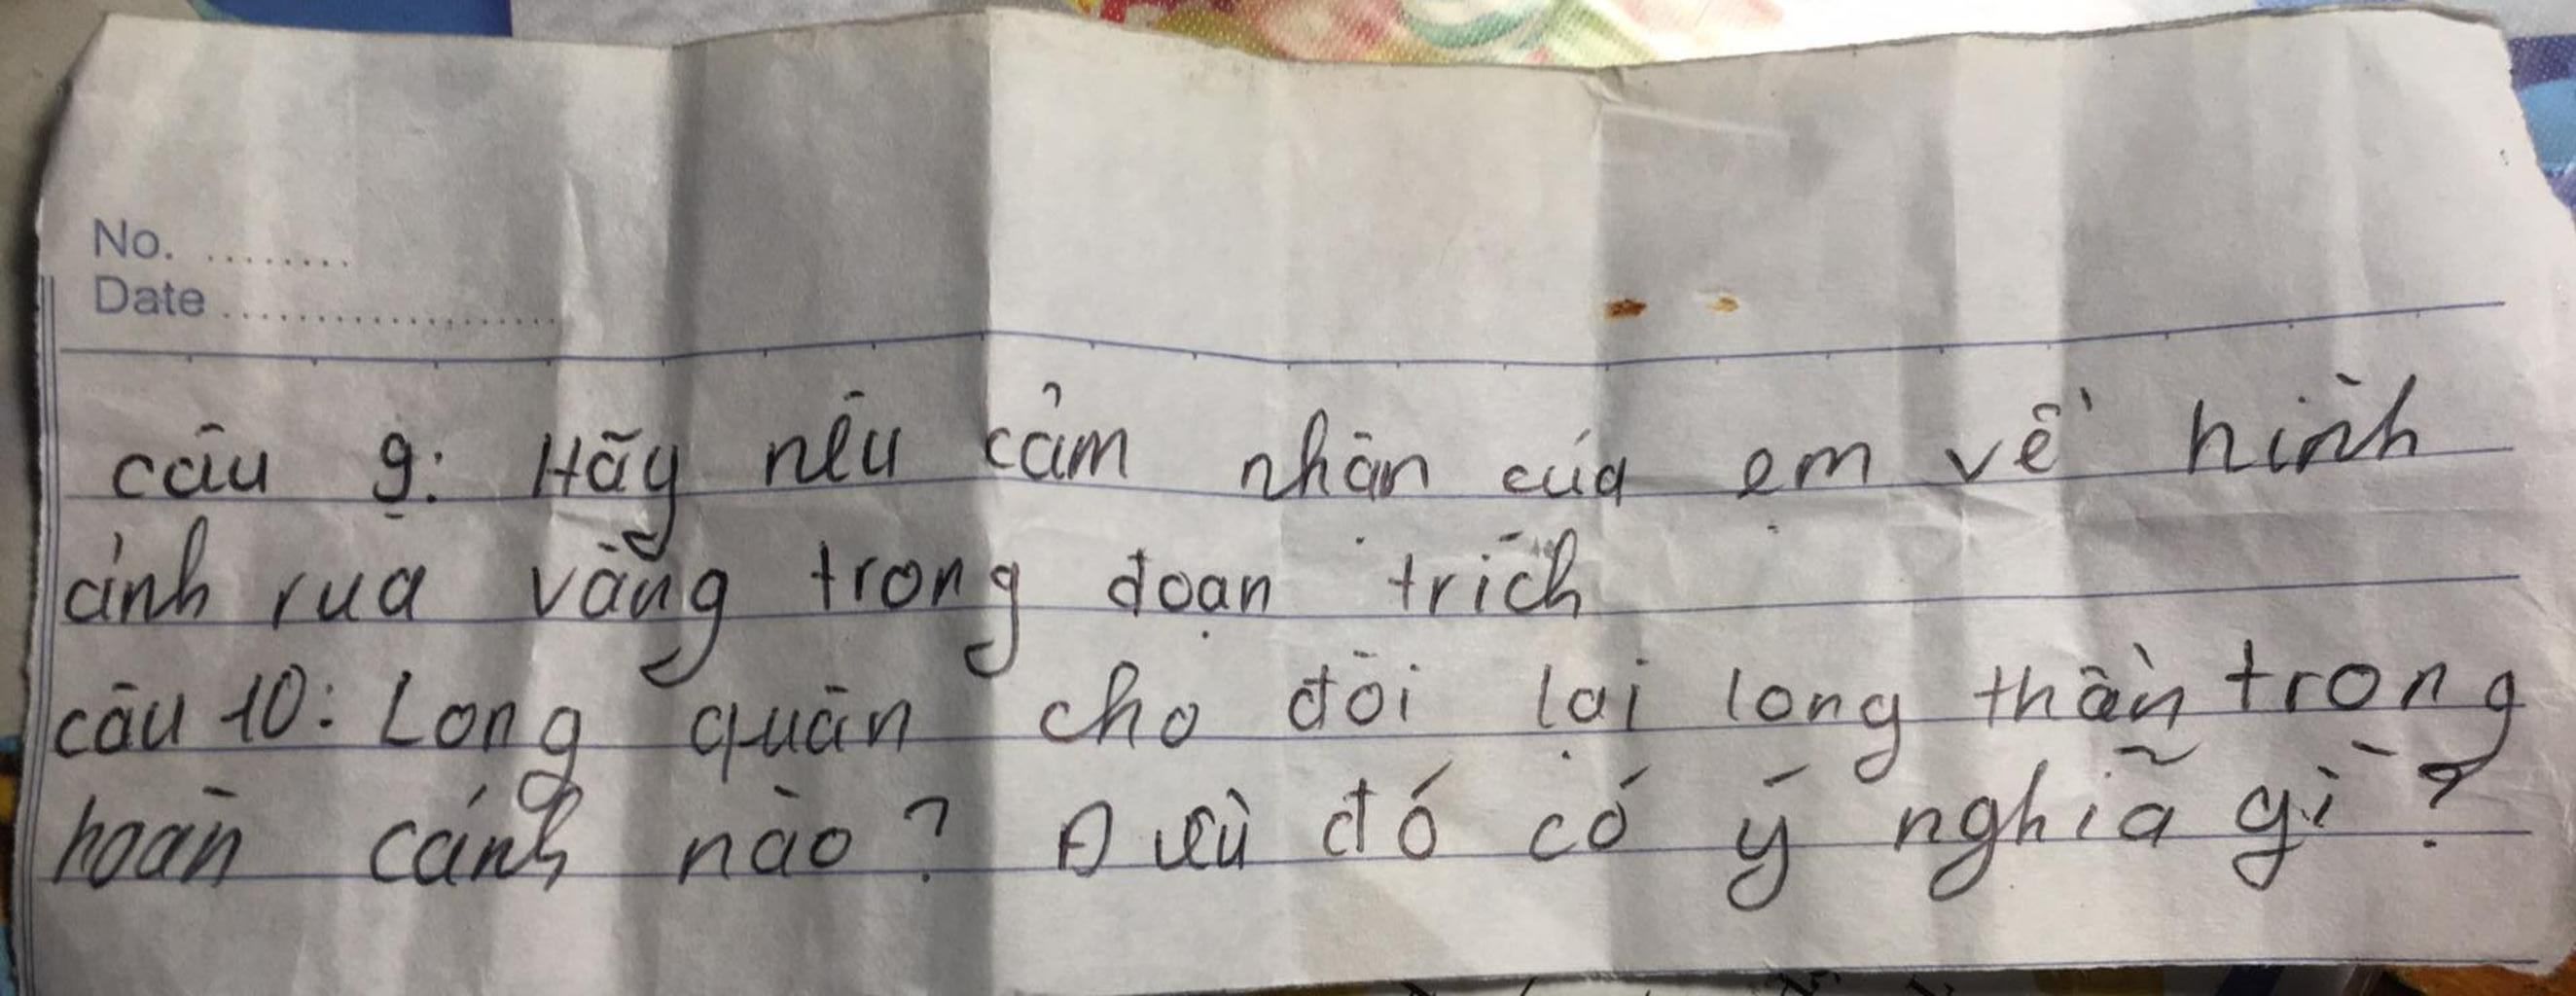 No. ........
Date ..................
câu 9: Hãy nêu cảm nhận của em về hình
ảnh rùa vàng trong đoạn trích
câu 10: Long quân cho đòi lại long thần trong
hoàn cảnh nào? Điều đó có ý nghĩa gì?